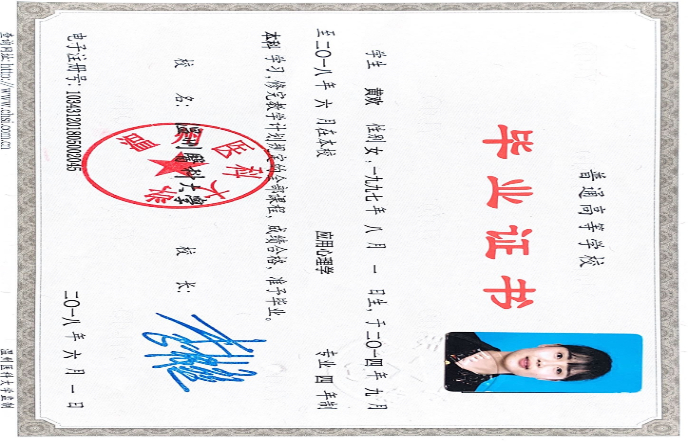 普通高等学校
毕业证书
学生 黄 性别女，一九九七年八月一日生，于二〇一四年九月
至二〇一八年六月在本校 应用心理学 专业 四年制
本科 学习，修完教学计划规定的全部课程，成绩合格，准予毕业。
校 名：温州醫科大學 校 长：
医科大
二〇一八年六月一日
电子注册号：103431201805002045
查询网址：http://www.chsi.com.cn 温州医科大学监制